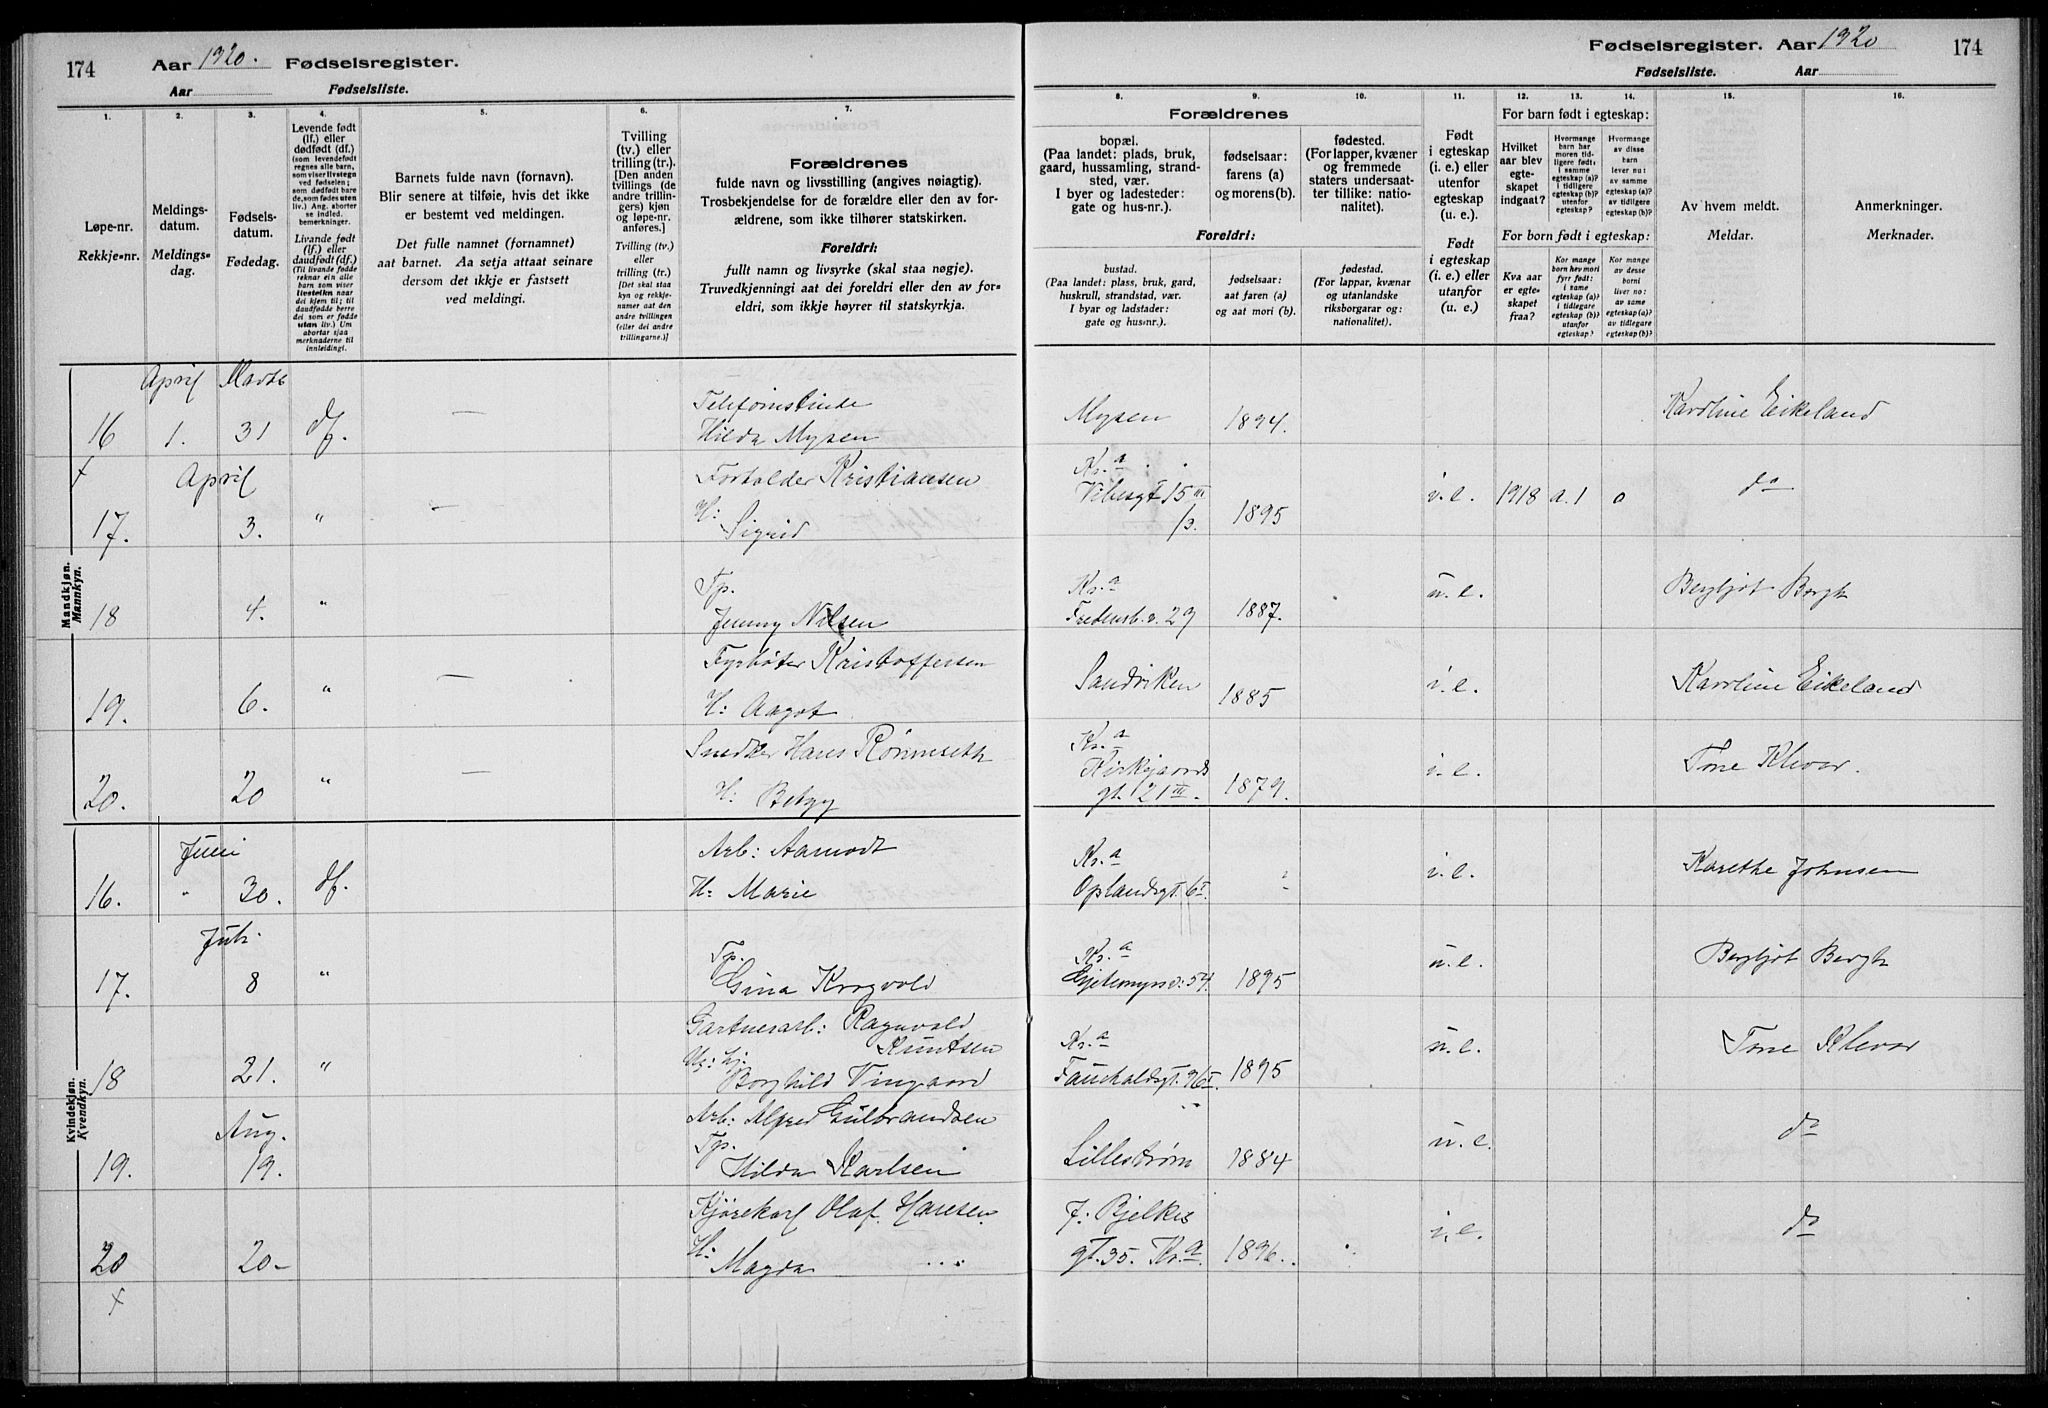 174
Aar 1920. Fødselsregister.
Aar Fødselsliste.
1.
2.
3.
4.
5.
6.
7.
Løpe-nr.
Rekkje-nr.
Meldings-
datum.
Meldings-
dag.
Fødsels-
datum.
Fødedag.
Levende født
(lf.) eller
dødfødt (df.)
(som levendefødt
regnes alle barn,
som viser livstegn
ved fødselen;
som dødfødt bare
de, som fødes uten
liv.) Ang. aborter
se indled.
bemerkninger.
Livande født
(lf.) eller
daudfødt (df.)
(Til livande fødde
reknar ein alle
born som viser
livsteikn naar
dei kjem til; til
daudfødde berre
dei som er fødde
utan liv.) Um
abortar sjaa
merknaderne til
innleidingi.
Barnets fulde navn (fornavn).
Blir senere at tilføie, hvis det ikke
er bestemt ved meldingen.
Det fulle namnet (fornamnet)
aat barnet. Aa setja attaat seinare
dersom det ikkje er fastsett
ved meldingi.
Tvilling
(tv.) eller
trilling (tr.).
[Den anden
tvillings (de
andre trillin-
gers) kjøn
og løpe-nr.
anføres.]
Tvilling (tv.)
eller
trilling (tr.)
[Det skal staa
kyn og rekkje-
numer aat den
andre tvillingen
(eller dei andre
trillingarne.)]
Forældrenes
fulde navn og livsstilling (angives nøiagtig).
Trosbekjendelse for de forældre eller den av for-
ældrene, som ikke tilhører statskirken.
Foreldri:
fullt namn og livsyrke (skal staa nøgje).
Truvedkjenningi aat dei foreldri eller den av for-
eldri, som ikkje høyrer til statskyrkja.
Mandkjøn.
Mannkyn.
April Marts
16 1. 31 df. — Telefonistinde
Hilda Mysen
April
17. 3. " — Forholder Kristiansen
H: Sigrid
18 4. " Tp.
Jenny Nilsen
19. 6. " — Fyrbøter Kristoffersen
H: Aagot
20. 20 " — Snedker Hans Rønneseth
H: Betzy
Kvindekjøn.
Kvendkyn.
Juni
16. " 30. df. Arb: Aamodt
H: Marie
Juli
17. 8 " Tp.
Gina Krogvold
18 21. " Gartnerarb: Ragnvald
Knutsen
Borghild Vingaard
Aug.
19. 19. Arb: Alfred Gulbrandsen
Tp.
Hilda Karlsen
20 20- Kjørekarl Olaf Hansen
H: Magda
Fødselsregister. Aar 1920
174
Fødselsliste. Aar
8.
9.
10.
11.
12.
13.
14.
15.
16.
Forældrenes
bopæl.
(Paa landet: plads, bruk,
gaard, hussamling, strand-
sted, vær.
I byer og ladesteder:
gate og hus-nr.).
fødselsaar:
farens (a)
og morens (b).
fødested.
(For lapper, kvæner
og fremmede
staters undersaat-
ter tillike: natio-
nalitet).
Foreldri:
bustad.
(Paa landet: plass, bruk, gard,
huskrull, strandstad, vær.
I byar og ladstader:
gate og husnr.).
fødselsaar:
aat faren (a)
og aat mori (b).
fødestad.
(For lappar, kvænar
og utanlandske
riksborgarar og:
nationalitet).
Født
i egteskap
(i. e.) eller
utenfor
egteskap
(u. e.).
Født
i egteskap
(i. e.) eller
utanfor
(u. e.)
For barn født i egteskap:
Hvilket
aar blev
egte-
skapet
indgaat?
Hvormange
barn har
moren tid-
ligere født:
i samme
egteskap (a)?
i tidligere
egteskap (b)?
utenfor
egteskap?
Hvormange
av disse
barn
lever nu:
av samme
egteskap (a)?
av tidligere
egteskap (b)?
For born født i egteskap:
Kva aar
er egte-
skapet
fraa?
Kor mange
born hev mori
fyrr født:
i same
egteskap (a)?
i tidlegare
egteskap (b)?
utanfor
egteskap?
Kor mange
av desse
borni
liver no:
av same
egteskap (a)?
av tidlegare
egteskap (b)?
Av hvem meldt.
Meldar.
Anmerkninger.
Merknader.
Mysen 1894. Karoline Eikeland
Kr.a
Vibesgt 15 III
1895 i. e. 1918 a. 1 0 do
Kr.a
Fredensb. v. 29 1887. u. e. Bergljot Borgh
Sandviken 1885 i. e. Karoline Eikeland
Kr.a
Kirkegaards
gt. 21 III. 1879. i. e. Tone Klevar.
Kr.a
Oplandsgt. 6 I. i. e. Karethe Johnsen
Kr.a
Gjetemyrsv: 54. 1895 u. e. Bergljot Borgh
Kr.a
Fauchaldsgt. 1895 u. e. Tone Klevar
Lillestrøm 1884 u. e. do
J. Bjelkes
gt. 35. Kr.a. 1896. i. e. do